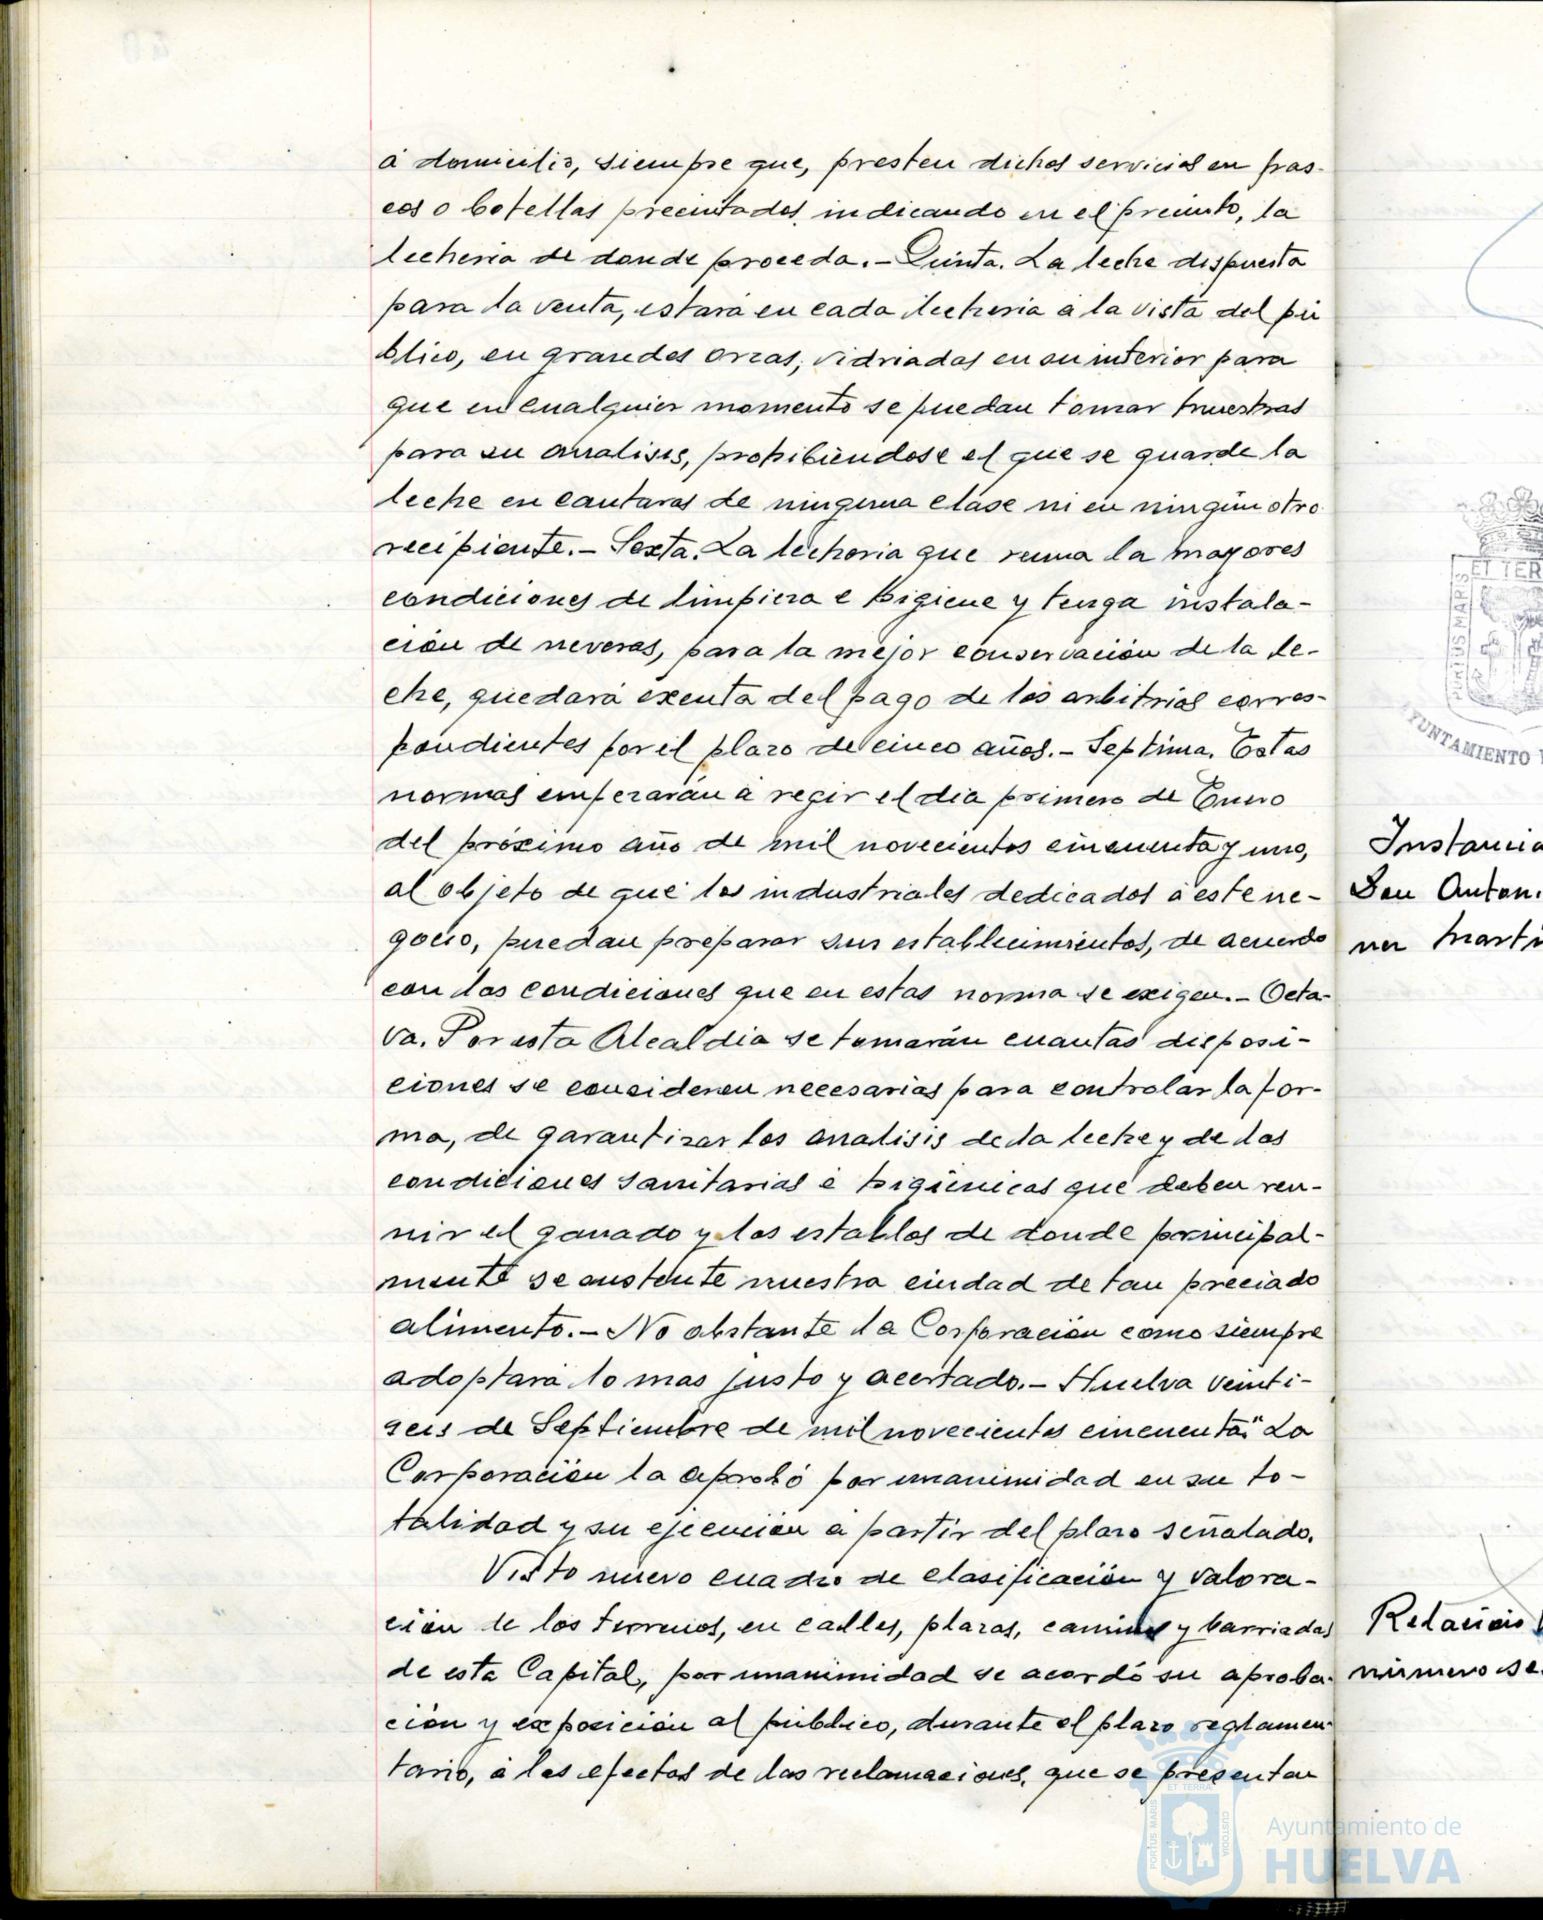 á domicilio, siempre que, presten dichos servicios en fras-
cos o botellas precintados indicando en el precinto, la
lecheria de donde proceda.- Quinta. La leche dispuesta
para la venta, estará en cada lecheria á la vista del pú
blico, en grandes orzas, vidriadas en su interior para
que en cualquier momento se puedan tomar muestras
para su analisis, prohibiendose el que se guarde la
leche en cantaras de ninguna clase ni en ningún otro
recipiente.- Sexta. La lecheria que reuna la mayores
condiciones de limpieza e higiene y tenga instala-
ción de neveras, para la mejor conservación de la le-
che, quedará exenta del pago de los arbitrios corres-
pondientes por el plazo de cinco años.- Septima. Estas
normas empezarán á regir el dia primero de Enero
del próximo año de mil novecientos cincuenta y uno,
al objeto de que los industriales dedicados á este ne-
gocio, puedan preparar sus establecimientos, de acuerdo
con las condiciones que en estas norma se exigen.- Octa-
va. Por esta Alcaldia se tomarán cuantas disposi-
ciones se consideren necesarias para controlar la for-
ma, de garantizar los analisis de la leche y de las
condiciones sanitarias é higiénicas que deben reu-
nir el ganado y los establos de donde principal-
mente se sustente nuestra ciudad de tan preciado
alimento.- No obstante la Corporación como siempre
adoptará lo mas justo y acertado.- Huelva veinti-
seis de Septiembre de mil novecientos cincuenta." La
Corporación la aprobó por unanimidad en su to-
talidad y su ejecución á partir del plazo señalado.
Visto nuevo cuadro de clasificación y valora-
ción de los terrenos, en calles, plazas, caminos y barriadas
de esta Capital, por unanimidad se acordó su aproba-
ción y exposición al público, durante el plazo reglamen-
tario, á los efectos de las reclamaciones, que se presentan
ET TER
PORTUS MARIS
AYUNTAMIENTO
Instancia
Don Antoni
Marti
Relación
número se
PORTUS MARIS
ET TERRA
CUSTODIA
Ayuntamiento de
HUELVA